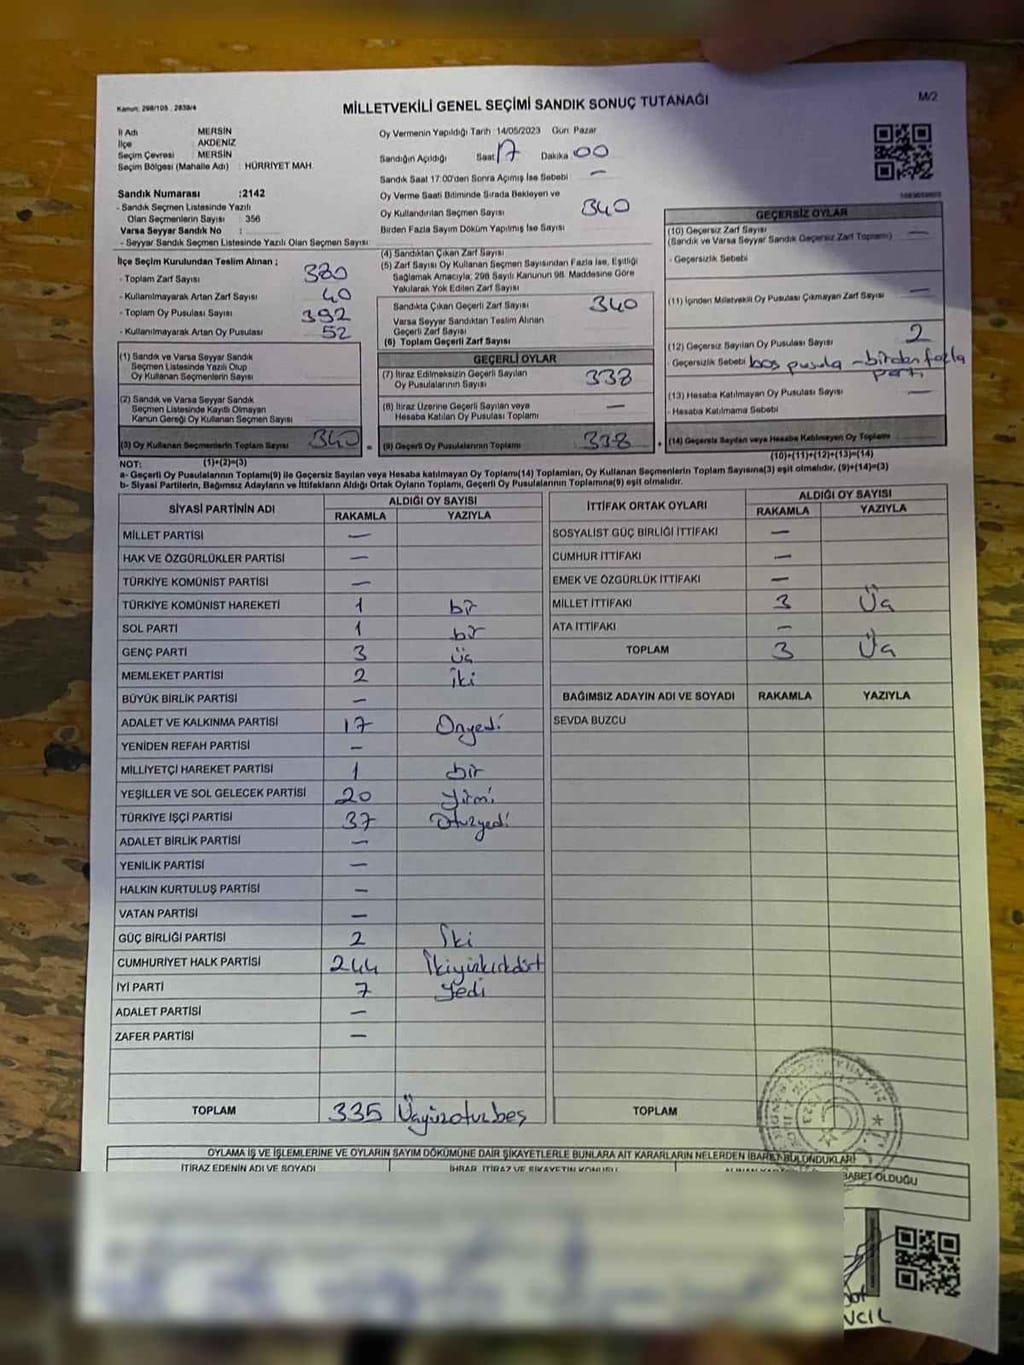 Kanun: 298/105 , 2839/4
MİLLETVEKİLİ GENEL SEÇİMİ SANDIK SONUÇ TUTANAĞI
M/2
İl Adı MERSİN
İlçe AKDENİZ
Seçim Çevresi MERSİN
Seçim Bölgesi (Mahalle Adı) : HÜRRİYET MAH.
Sandık Numarası :2142
- Sandık Seçmen Listesinde Yazılı
Olan Seçmenlerin Sayısı : 356
Varsa Seyyar Sandık No :
- Seyyar Sandık Seçmen Listesinde Yazılı Olan Seçmen Sayısı
İlçe Seçim Kurulundan Teslim Alınan ;
- Toplam Zarf Sayısı 380
- Kullanılmayarak Artan Zarf Sayısı 40
- Toplam Oy Pusulası Sayısı 392
- Kullanılmayarak Artan Oy Pusulası 52
(1) Sandık ve Varsa Seyyar Sandık
Seçmen Listesinde Yazılı Olup
Oy Kullanan Seçmenlerin Sayısı
(2) Sandık ve Varsa Seyyar Sandık
Seçmen Listesinde Kayıtlı Olmayan
Kanun Gereği Oy Kullanan Seçmen Sayısı
(3) Oy Kullanan Seçmenlerin Toplam Sayısı 340
(1)+(2)=(3)
Oy Vermenin Yapıldığı Tarih :14/05/2023 Gün: Pazar
Sandığın Açıldığı Saat 17 Dakika 00
Sandık Saat 17:00'den Sonra Açımış İse Sebebi : —
Oy Verme Saati Bitiminde Sırada Bekleyen ve
Oy Kullandırılan Seçmen Sayısı 340
Birden Fazla Sayım Döküm Yapılmış İse Sayısı
(4) Sandıktan Çıkan Zarf Sayısı
(5) Zarf Sayısı Oy Kullanan Seçmen Sayısından Fazla İse, Eşitliği
Sağlamak Amacıyla; 298 Sayılı Kanunun 98. Maddesine Göre
Yakılarak Yok Edilen Zarf Sayısı
Sandıkta Çıkan Geçerli Zarf Sayısı 340
Varsa Seyyar Sandıktan Teslim Alınan
Geçerli Zarf Sayısı
(6) Toplam Geçerli Zarf Sayısı
GEÇERLİ OYLAR
(7) İtiraz Edilmeksizin Geçerli Sayılan
Oy Pusulalarının Sayısı 338
(8) İtiraz Üzerine Geçerli Sayılan veya
Hesaba Katılan Oy Pusulası Toplamı —
= (9) Geçerli Oy Pusulalarının Toplamı 338 +
GEÇERSİZ OYLAR
(10) Geçersiz Zarf Sayısı —
(Sandık ve Varsa Seyyar Sandık Geçersiz Zarf Toplamı)
- Geçersizlik Sebebi
(11) İçinden Milletvekili Oy Pusulası Çıkmayan Zarf Sayısı —
(12) Geçersiz Sayılan Oy Pusulası Sayısı 2
- Geçersizlik Sebebi boş pusula - birden fazla
parti
(13) Hesaba Katılmayan Oy Pusulası Sayısı —
- Hesaba Katılmama Sebebi
(14) Geçersiz Sayılan veya Hesaba Katılmayan Oy Toplamı
(10)+(11)+(12)+(13)=(14)
NOT:
a- Geçerli Oy Pusulalarının Toplamı(9) ile Geçersiz Sayılan veya Hesaba katılmayan Oy Toplamı(14) Toplamları, Oy Kullanan Seçmenlerin Toplam Sayısına(3) eşit olmalıdır, (9)+(14)=(3)
b- Siyasi Partilerin, Bağımsız Adayların ve İttifakların Aldığı Ortak Oyların Toplamı, Geçerli Oy Pusulalarının Toplamına(9) eşit olmalıdır.
SİYASİ PARTİNİN ADI ALDIĞI OY SAYISI
RAKAMLA YAZIYLA
MİLLET PARTİSİ —
HAK VE ÖZGÜRLÜKLER PARTİSİ —
TÜRKİYE KOMÜNİST PARTİSİ —
TÜRKİYE KOMÜNİST HAREKETİ 1 bir
SOL PARTİ 1 bir
GENÇ PARTİ 3 üç
MEMLEKET PARTİSİ 2 iki
BÜYÜK BİRLİK PARTİSİ —
ADALET VE KALKINMA PARTİSİ 17 Onyedi
YENİDEN REFAH PARTİSİ —
MİLLİYETÇİ HAREKET PARTİSİ 1 bir
YEŞİLLER VE SOL GELECEK PARTİSİ 20 Yirmi
TÜRKİYE İŞÇİ PARTİSİ 37 Otuzyedi
ADALET BİRLİK PARTİSİ —
YENİLİK PARTİSİ —
HALKIN KURTULUŞ PARTİSİ —
VATAN PARTİSİ —
GÜÇ BİRLİĞİ PARTİSİ 2 İki
CUMHURİYET HALK PARTİSİ 244 İkiyüzkırkdört
İYİ PARTİ 7 Yedi
ADALET PARTİSİ —
ZAFER PARTİSİ —
TOPLAM 335 Üçyüzotuzbeş
İTTİFAK ORTAK OYLARI ALDIĞI OY SAYISI
RAKAMLA YAZIYLA
SOSYALİST GÜÇ BİRLİĞİ İTTİFAKI —
CUMHUR İTTİFAKI —
EMEK VE ÖZGÜRLÜK İTTİFAKI —
MİLLET İTTİFAKI 3 Üç
ATA İTTİFAKI —
TOPLAM 3 Üç
BAĞIMSIZ ADAYIN ADI VE SOYADI RAKAMLA YAZIYLA
SEVDA BUZCU
TOPLAM
OYLAMA İŞ VE İŞLEMLERİNE VE OYLARIN SAYIM DÖKÜMÜNE DAİR ŞİKAYETLERLE BUNLARA AİT KARARLARIN NELERDEN İBARET BULUNDUKLARI
İTİRAZ EDENİN ADI VE SOYADI İHBAR, İTİRAZ VE ŞİKAYETİN KONUSU
İSABET OLDUĞU